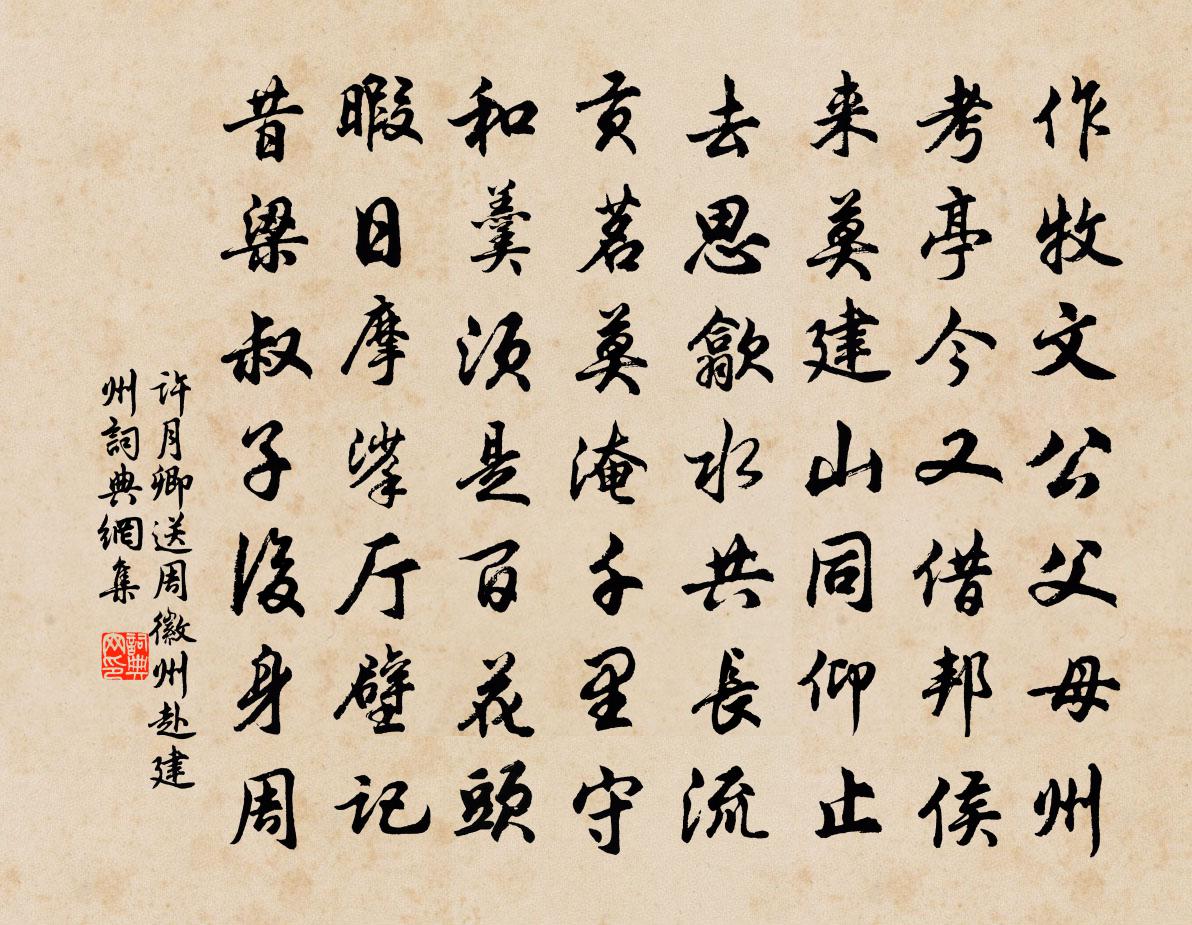 作牧文公父母州
考亭今又借邦侯
来莫建山同仰止
去思歙水共長流
贡茗莫淹千里守
和羹须是百花頭
暇日摩挲厅壁记
昔梁叔子後身周
许月卿送周徽州赴建
州詞典網集
詞典网印